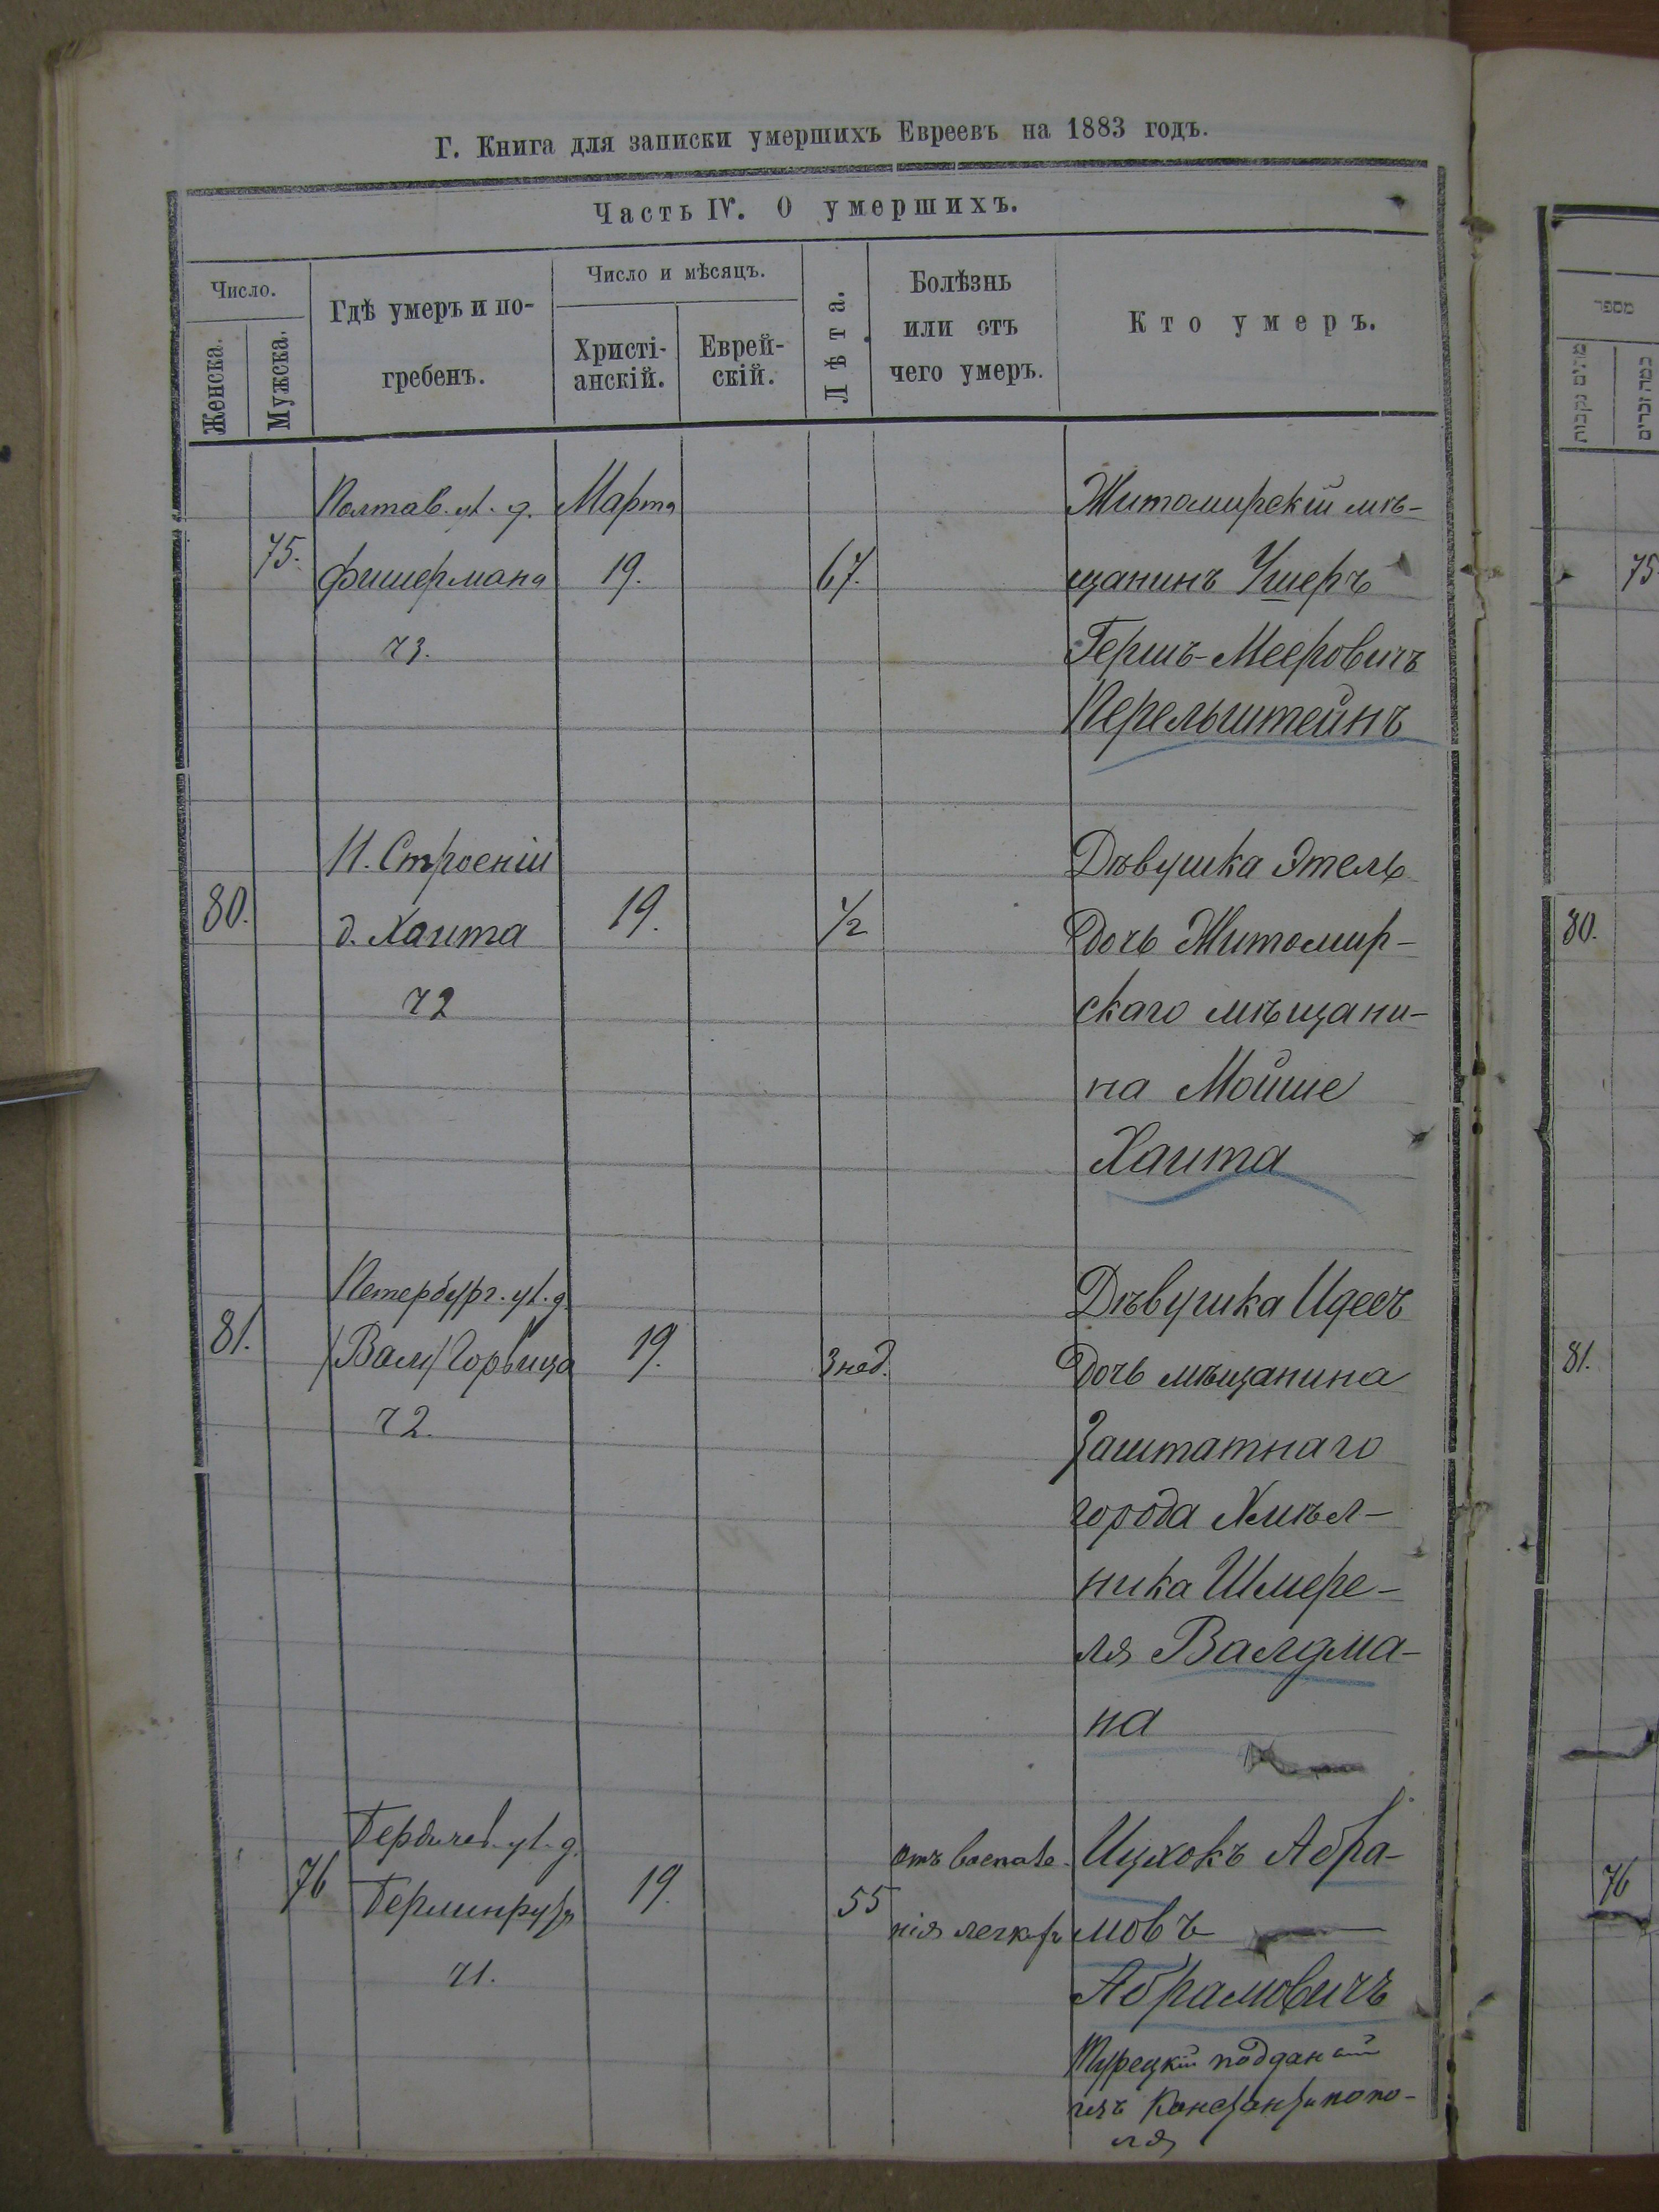 Г. Книга для записки умершихъ Евреевъ на 1883 годъ.
Часть IV. О умершихъ.
Число.
Женска.
Мужска.
Гдѣ умеръ и по-
гребенъ.
Число и мѣсяцъ.
Христі-
анскій.
Еврей-
скій.
Лѣта.
Болѣзнь
или отъ
чего умеръ.
Кто умеръ.
75.
Полтав. ул. д.
Фишермана
ч3.
Марта
19.
67.
Житомирскій мѣ-
щанинъ Ушеръ
Гершъ-Мееровичъ
Перельштейнъ
80.
Н. Строеніи
д. Хаита
ч2
19.
1/2
Дѣвушка Этель
Дочь Житомир-
скаго мѣщани-
на Мойше
Хаита
81.
Петербург. ул. д.
/Вал/ Горвица
ч2.
19.
3 нед.
Дѣвушка Идесъ
Дочь мѣщанина
Заштатнаго
города Хмѣл-
ника Шмере-
ля Валдма-
на
76
Бердичев. ул. д.
ч1.
19.
55
отъ воспале-
нія легк.
Ицхокъ Абра-
мовъ
Абрамовичъ
Турецкій подданый
изъ Константинопо-
ля
מספר
מנין נקבות
כמה זכרים
75
80.
81.
76